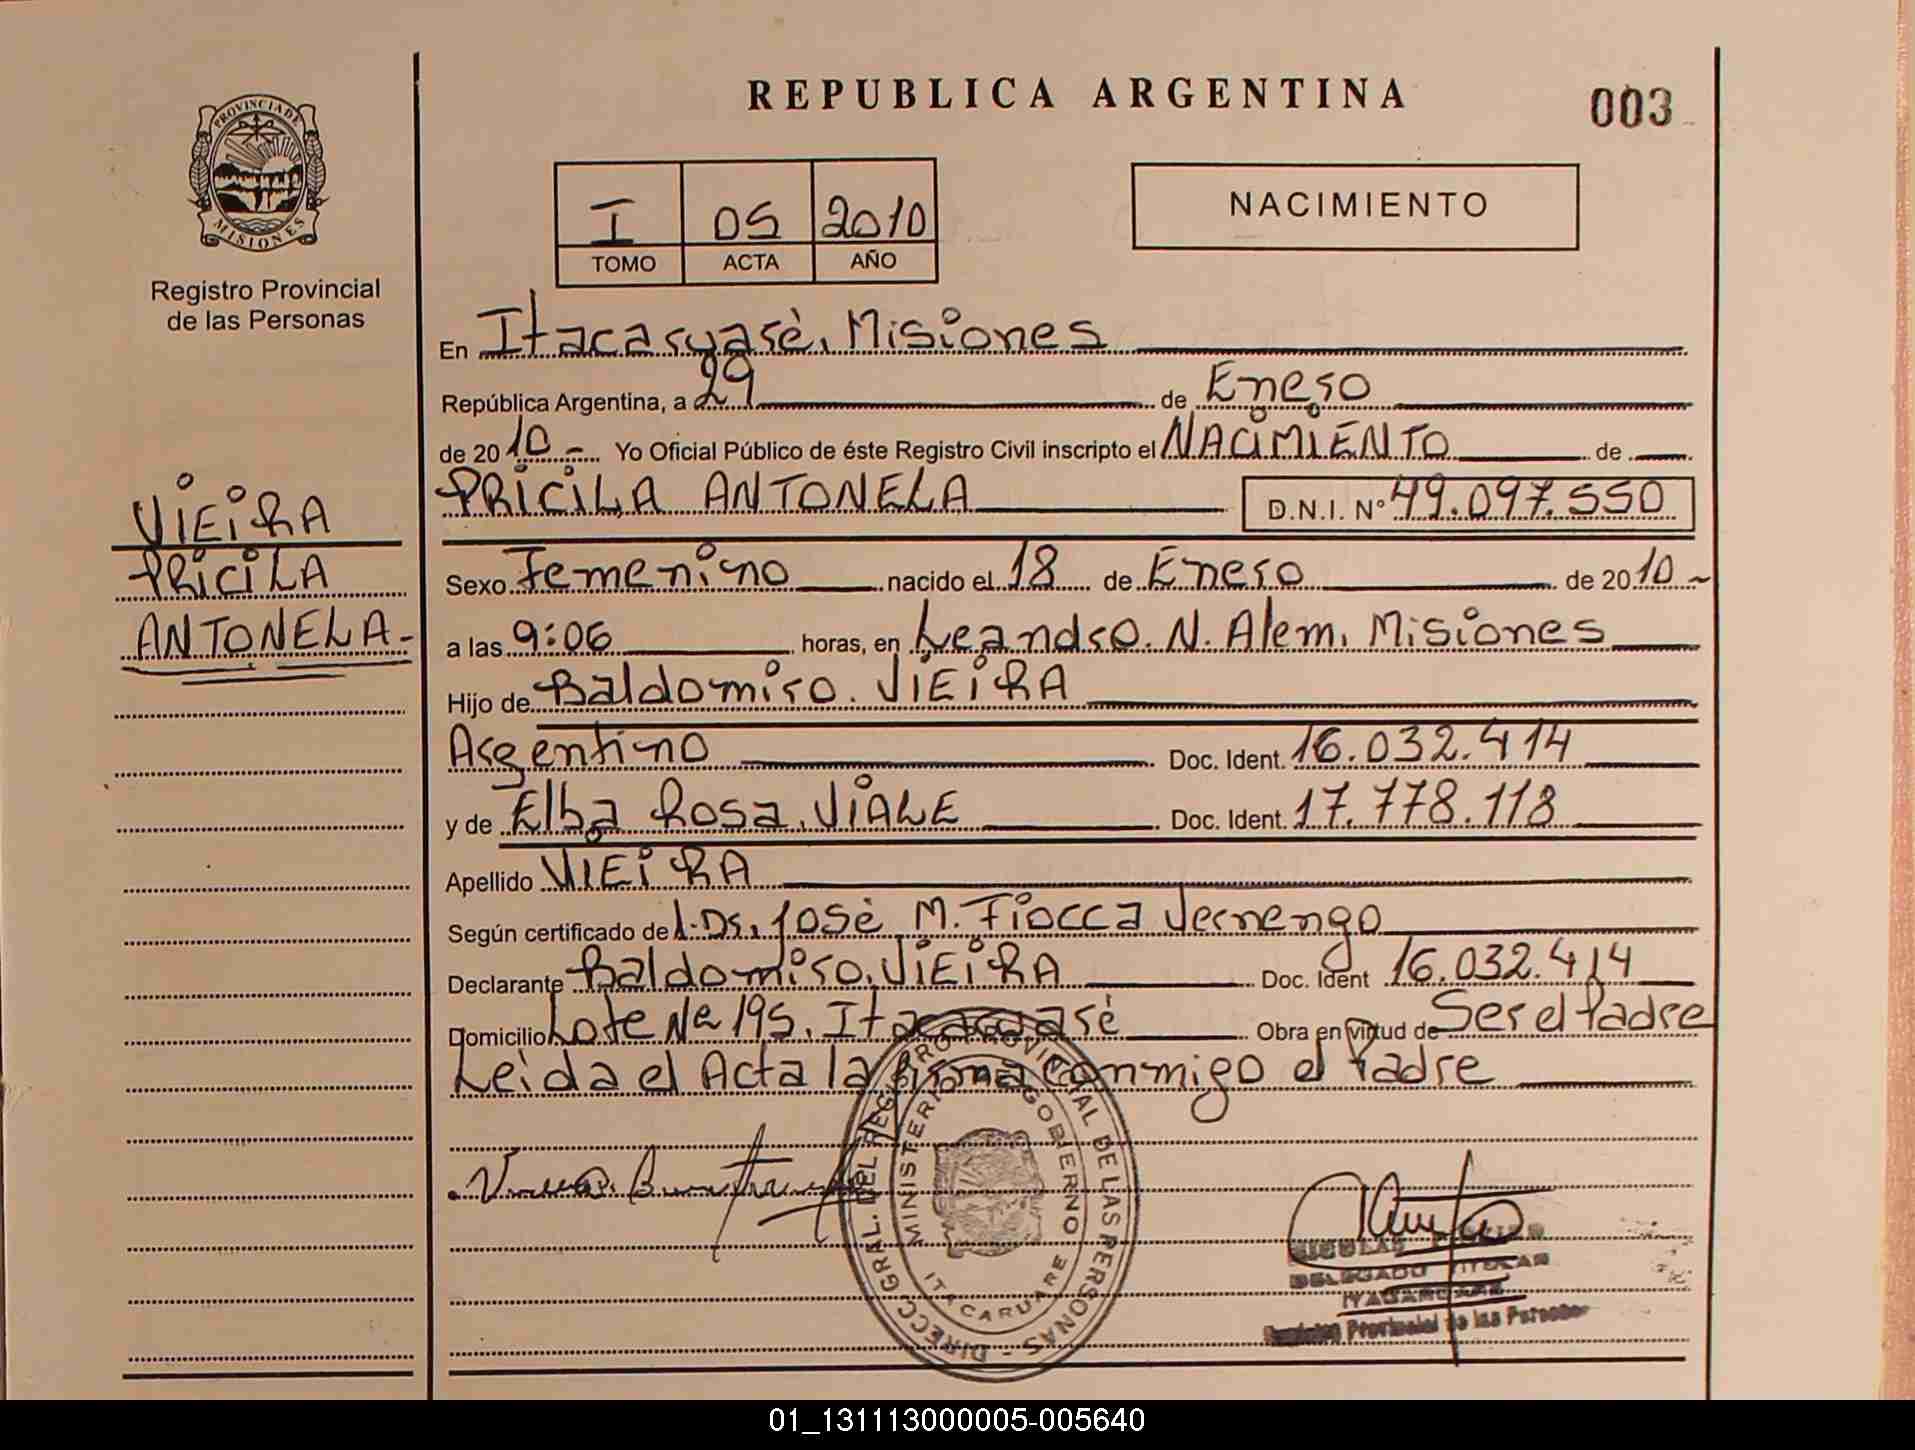 REPUBLICA ARGENTINA
003
PROVINCIA DE MISIONES
Registro Provincial
de las Personas
I 05 2010
TOMO ACTA AÑO
NACIMIENTO
En Itacaruaré, Misiones
República Argentina, a 29 de Enero
de 2010.- Yo Oficial Público de éste Registro Civil inscripto el NACIMIENTO de
PRICILA ANTONELA D.N.I. N° 49.097.550
VIEIRA
PRICILA
ANTONELA.-
Sexo Femenino nacido el 18 de Enero de 2010
a las 9:06 horas, en Leandro. N. Alem, Misiones
Hijo de Baldomiro. VIEIRA
Argentino Doc. Ident. 16.032.414
y de Elba Rosa. VIALE Doc. Ident. 17.778.118
Apellido VIEIRA
Según certificado de l. Dr. José M. Fiocca Vernengo
Declarante Baldomiro. VIEIRA Doc. Ident 16.032.414
Domicilio Lote Nº 195. Itacaruaré Obra en virtud de Ser el Padre
Leida el Acta la firma conmigo el Padre
DIRECC. GRAL. DEL REGISTRO PROVINCIAL DE LAS PERSONAS -
MINISTERIO GOBIERNO
ITACARUARE
DELEGADO TITULAR
Registro Provincial de las Personas
01_131113000005-005640